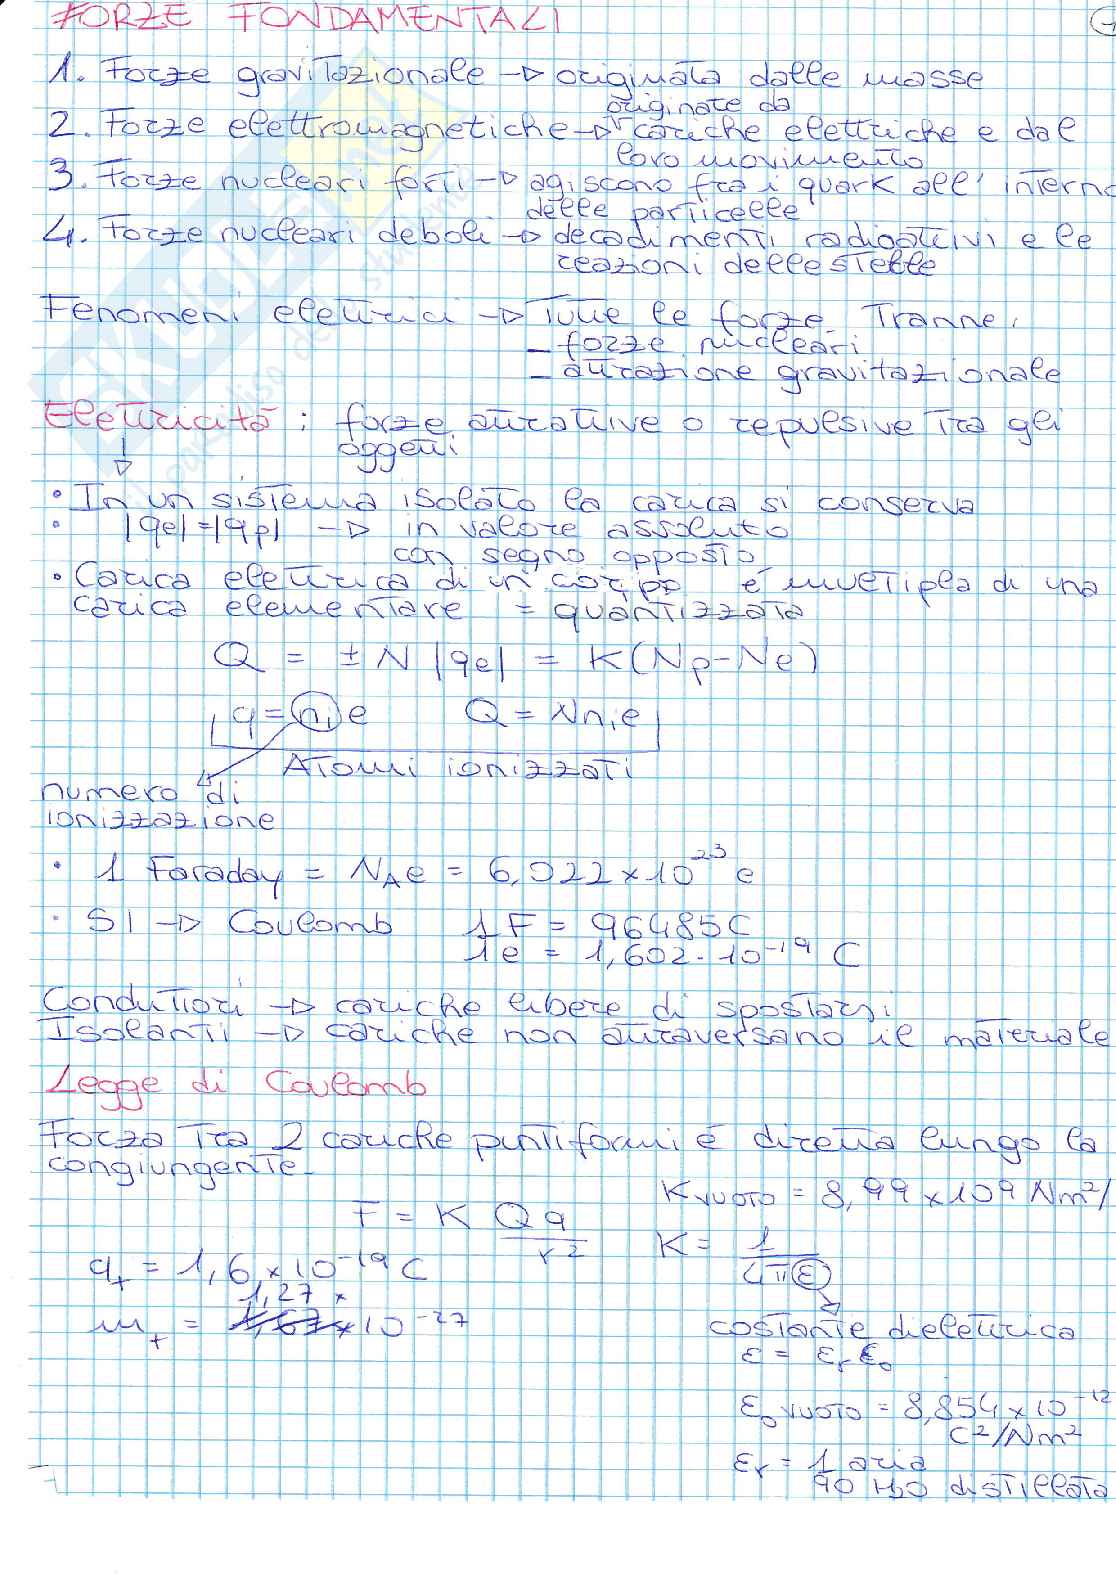 FORZE FONDAMENTALI
1. Forze gravitazionale → originata dalle masse
originate da
2. Forze elettromagnetiche → cariche elettriche e dal
loro movimento
3. Forze nucleari forti → agiscono fra i quark all' interno
delle particelle
4. Forze nucleari deboli → decadimenti radioattivi e le
reazioni delle stelle
Fenomeni elettrici → Tutte le forze Tranne:
- forze nucleari
- attrazione gravitazionale
Elettricità : forze attrattive o repulsive tra gli
oggetti
• In un sistema isolato la carica si conserva
• |qe| = |qp| → in valore assoluto
con segno opposto
• Carica elettrica di un corpo é multipla di una
carica elementare = quantizzata
Q = ± N |qe| = K(Np-Ne)
q = n, e Q = N n, e
Atomi ionizzati
numero di
ionizzazione
• 1 Faraday = N_A e = 6,022 × 10^23 e
• SI → Coulomb 1 F = 96485 C
1e = 1,602 · 10^-19 C
Conduttori → cariche libere di spostarsi
Isolanti → cariche non attraversano il materiale
Legge di Coulomb
Forza tra 2 cariche puntiformi é diretta lungo la
congiungente
K vuoto = 8,99 × 109 Nm²/
F = K Qq / r²
K = 1 / 4πε
q+ = 1,6 × 10^-19 C
1,27 ×
m+ = 1,67 × 10^-27
costante dielettrica
ε = εr ε0
ε0 vuoto = 8,854 × 10^-12
C²/Nm²
εr = 1 aria
90 H2O distillata